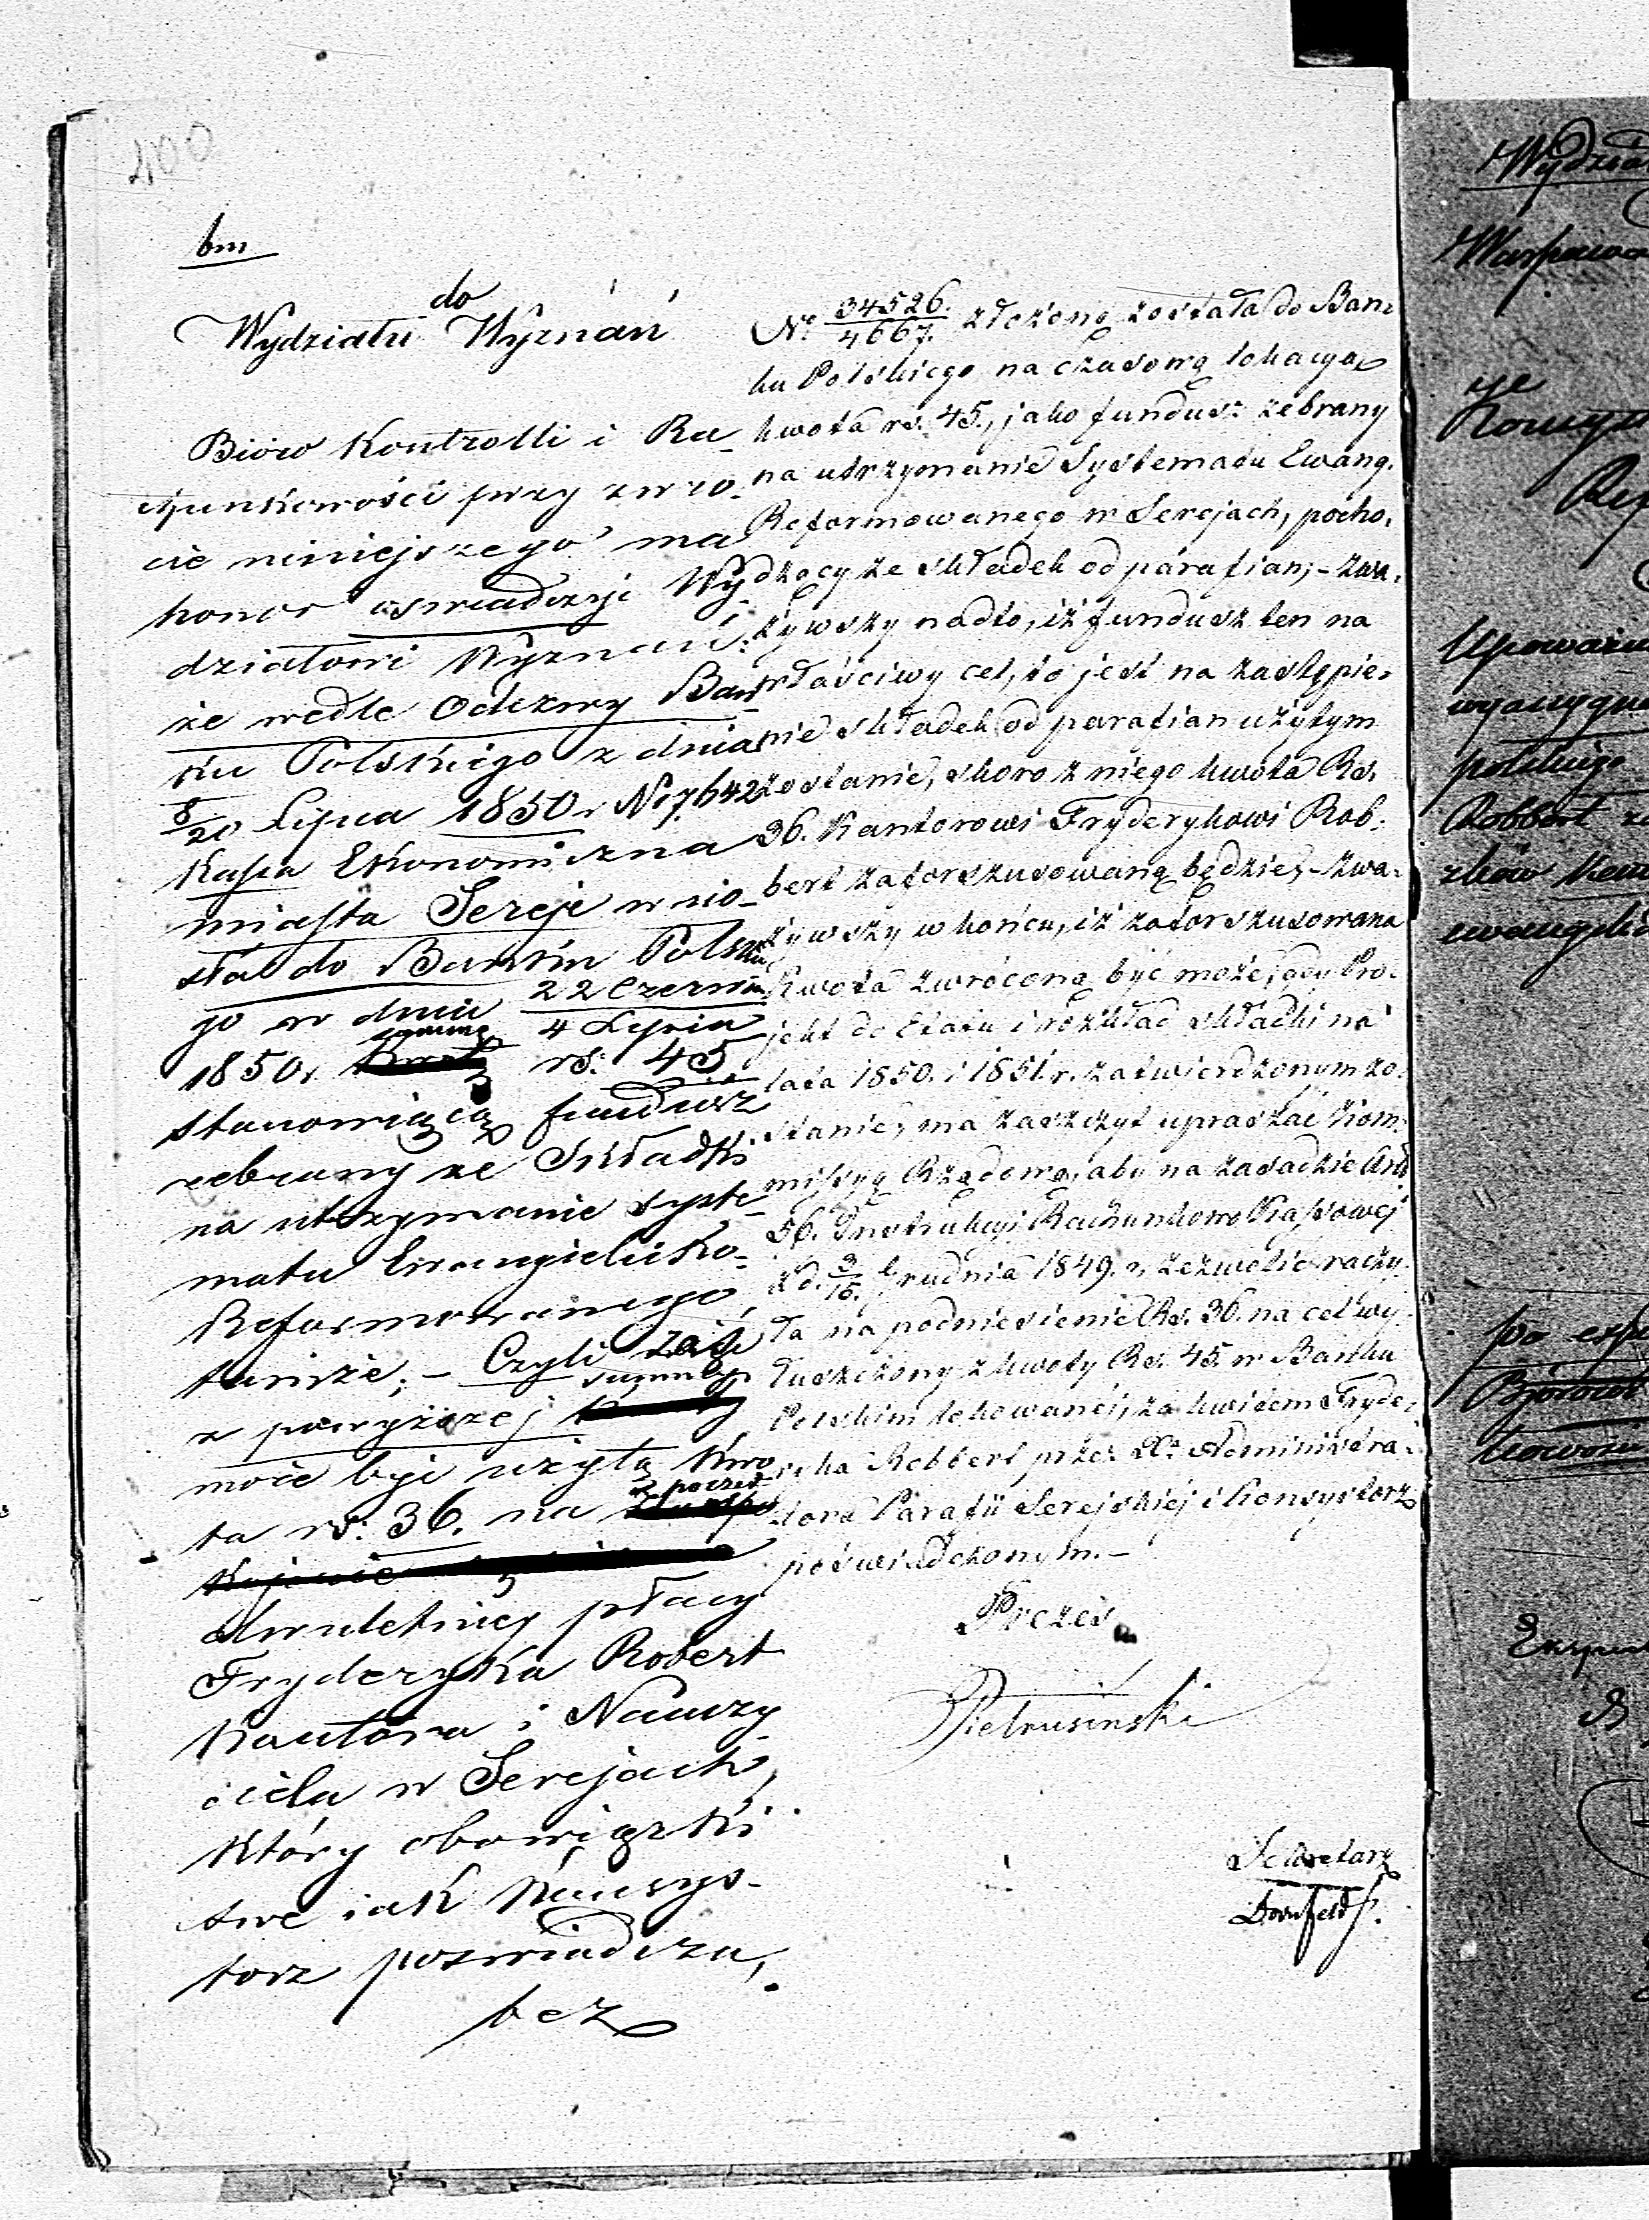 400
bm
do
Wydziału Wyznań
Biuro Kontrolli i Ra-
chunkowości przy zwro-
cie niniejszego ma
honor oswiadczyć Wy-
działowi Wyznań:
że wedle Odezwy Ban-
ku Polskiego z dnia
8/20 Lipca 1850 r No 7642
Kassa Ekonomiczna
miasta Sereje wnio-
sła do Banku Polskie-
go w dniu 22 Czerwca / 4 Lipca
1850 r summę rs: 45
stanowiącą fundusz
zebrany ze Składki
na utrzymanie syste-
matu Ewangielicko-
Reformowanego
tamże; – Czyli zaś
z powyższej summy
może być użytą kwo-
ta rs: 36. na poczet
dwuletniej płacy
Fryderyka Robert
Kantora i Nauczy-
ciela w Serejach,
który obowiązki
swe jak Konsys-
torz poswiadcza,
bez
No 34526./4667. złożoną została do Ban-
ku Polskiego na czasową lokacyą
kwota rs. 45., jako fundusz zebrany
na utrzymanie Systematu Ewang.
Reformowanego w Serejach, pocho-
dzący ze składek od parafian; – zwa-
żywszy nadto, iż fundusz ten na
właściwy cel, to jest na zastąpie-
nie składek od parafian użytym
zostanie, skoro z niego kwota Rs.
36. Kantorowi Fryderykowi Rob-
bert zaforszusowaną będzie, – zwa-
żywszy w końcu, iż zaforszusowana
kwota zwróconą być może, gdy Pro-
jekt do Etatu i rozkład składki na
lata 1850. i 1851. r. zatwierdzonym zo-
stanie, ma zaszczyt upraszać Kom-
missyą Rządową, aby na zasadzie Art.
56. Instrukcyi Rachunkowo Kassowej
z d. 3/15. Grudnia 1849. r. zezwolić raczy-
ła na podniesienie Rs. 36. na cel wy-
łuszczony z kwoty Rs. 45. w Banku
Polskim lokowanej, za kwitem Fryde-
ryka Robbert przez Xa Administra-
tora Parafii Serejskiej i Konsystorz
poświadczonym. –
Prezes
Pietrusiński
Sekretarz
Dornfeld
Wydzia
Warszawa
Upoważn
polskiego
Robbert
po exp